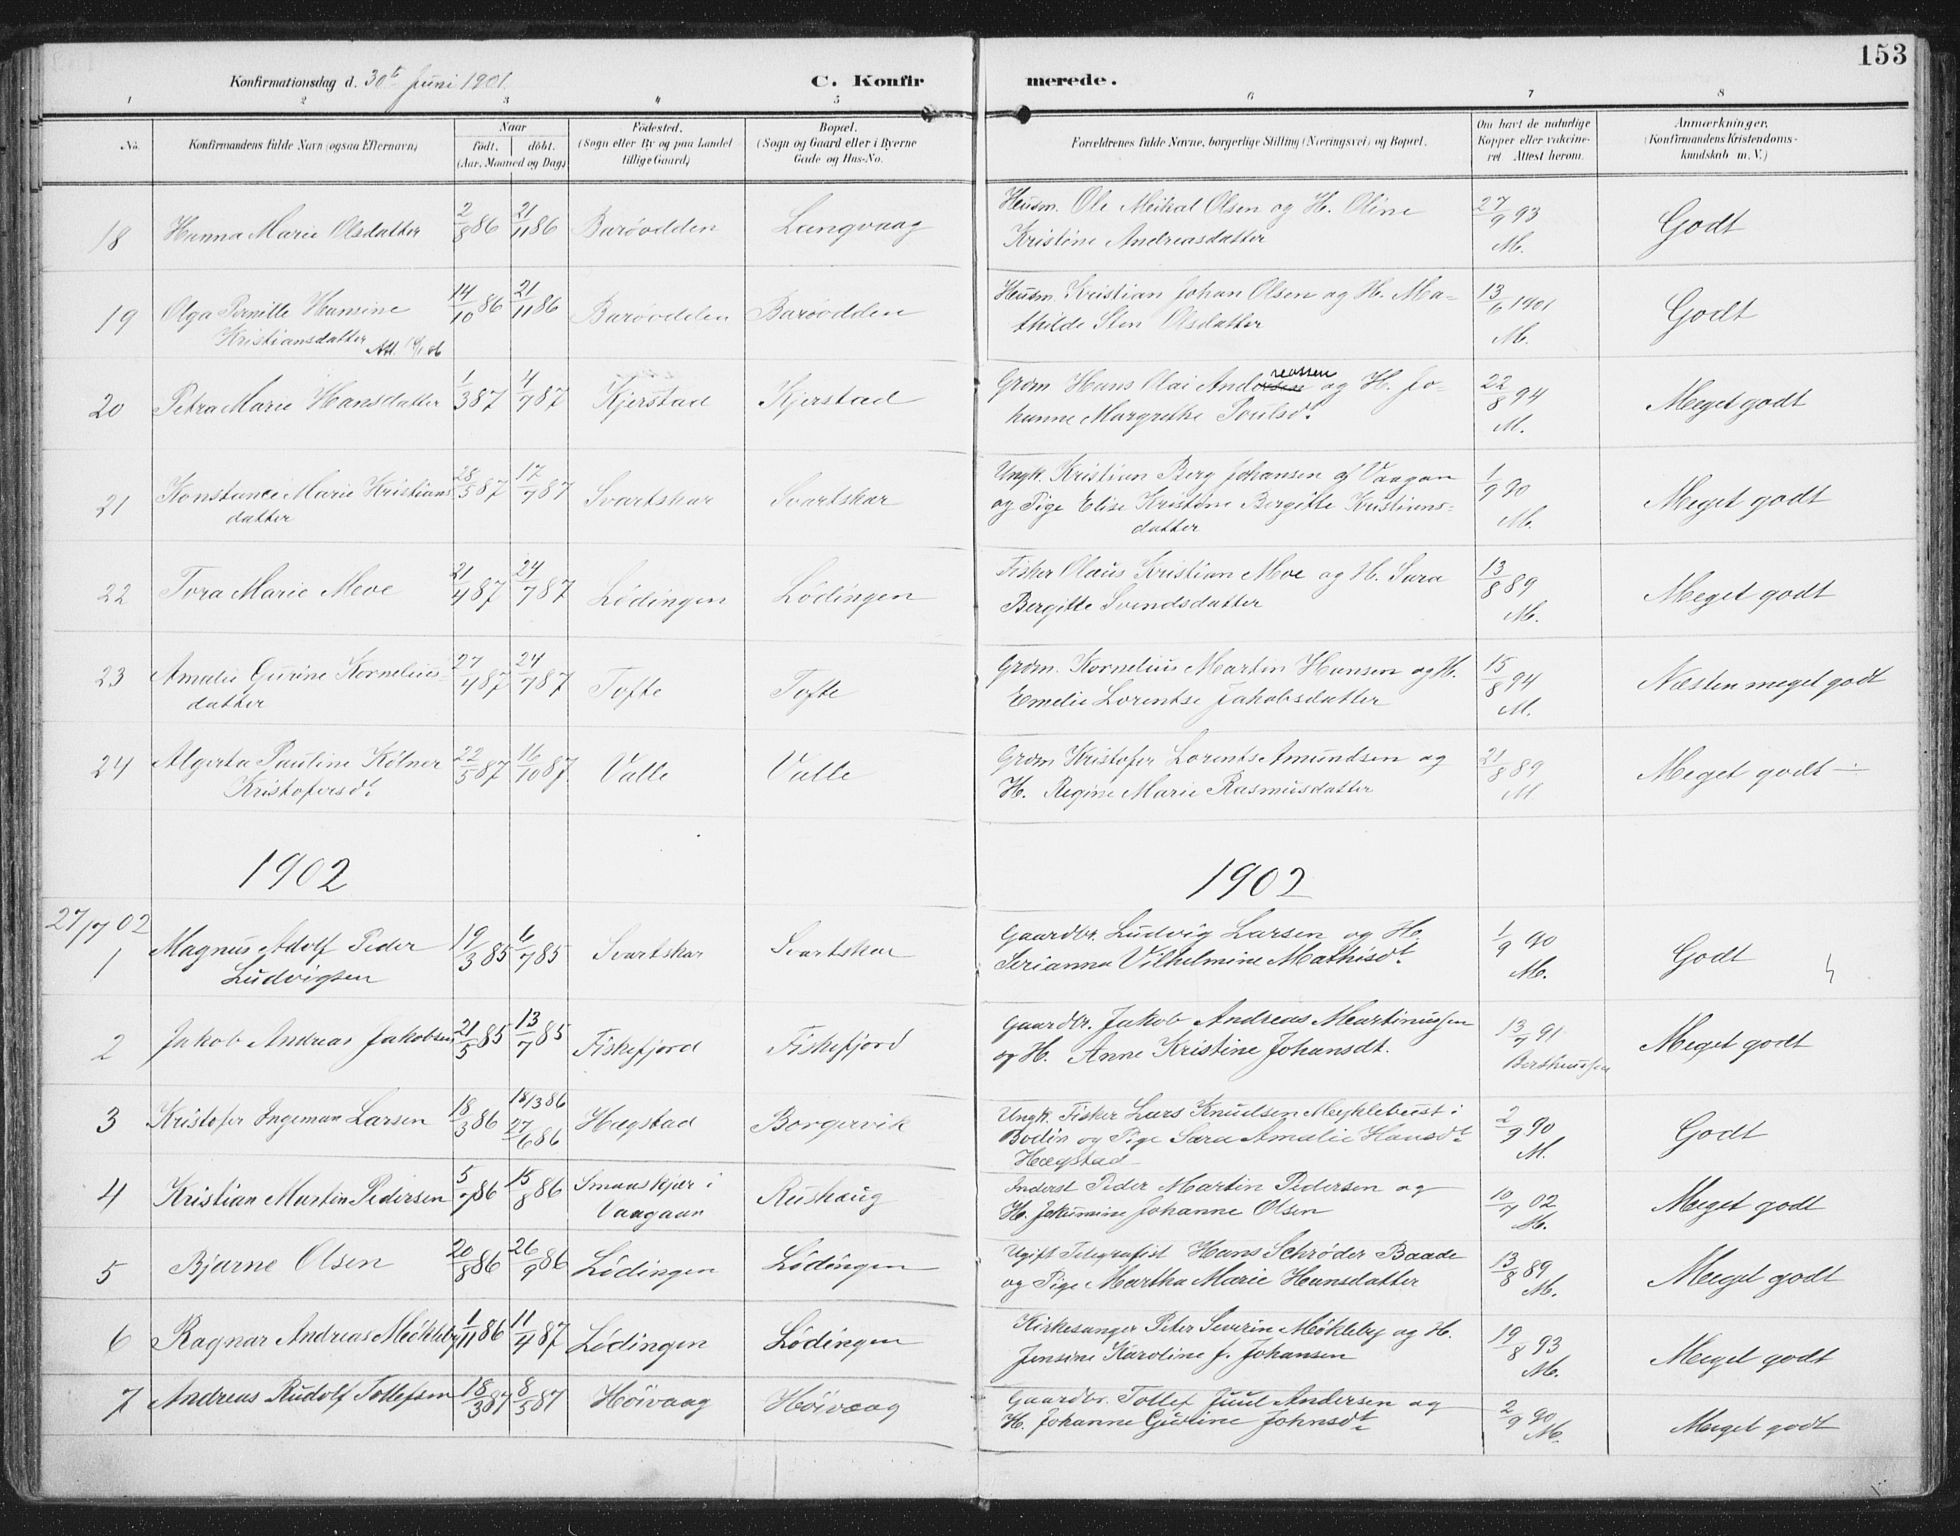 153
Konfirmationsdag d. 30te Juni 1901.
C. Konfirmerede.
1 2 3 4 5 6 7 8
No.
Konfirmandens fulde Navn (ogsaa Efternavn)
Naar
født. døbt.
(Aar, Maaned og Dag)
Fødested.
(Sogn eller By og paa Landet
tillige Gaard)
Bopæl.
(Sogn og Gaard eller i Byerne
Gade og Hus-No.
Forældrenes fulde Navne, borgerlige Stilling (Næringsvei) og Bopæl.
Om havt de naturlige
Kopper eller vakcine-
ret Attest herom.
Anmærkninger.
(Konfirmandens Kristendoms-
kundskab m. V.)
18 Hanna Marie Olsdatter 2/8 86 21/11 86 Barøodden Langvaag Husm. Ole Meikal Olsen og H. Oline
Kristine Andreasdatter 27/9 93 M. Godt
19 Olga Pernille Hansine 14/10 86 21/11 86 Barøodden Barøodden Husm. Kristian Johan Olsen og H. Ma-
Kristiansdatter Att. thilde Sten Olsdatter 13/6 1901 M. Godt
20 Petra Marie Hansdatter 1/3 87 4/9 87 Kjerstad Kjerstad Grdm. Hans Olai Andreassen og H. Jo-
hanne Margrethe Poulsdt. 22/8 94 M. Meget godt
21 Konstance Marie Kristians 28/5 87 17/7 87 Svartskar Svartskar Ungk. Kristian Berg Johansen af Vaagan
datter og Pige Elise Kristine Bergitte Kristians-
datter 1/9 90 M. Meget godt
22 Tora Marie Moe 21/4 87 24/7 87 Lødingen Lødingen Fisker Olaus Kristian Moe og H. Sara
Bergitte Svendsdatter 13/8 89 M. Meget godt
23 Amalie Gurine Kornelius- 27/4 87 24/7 87 Tofte Tofte Grdm. Kornelius Martin Hansen og H.
datter Emelie Lorentse Jakobsdatter 15/8 94 M. Næsten meget godt
24 Algerta Pauline Kølner 22/5 87 16/10 87 Valle Valle Grdm Kristofer Lorents Amundsen og
Kristofersdt. H. Regine Marie Rasmusdatter 21/8 89 M Meget godt
1902 1902
27/7 02
1 Magnus Adolf Peder 19/3 85 6/7 85 Svartskar Svartskar Gaardbr. Ludvig Larsen og H.
Ludvigsen Serianna Vilhelmine Mathisdt. 1/9 90 M. Godt
2 Jakob Andreas Jakobsen 21/5 85 13/7 85 Fiskefjord Fiskefjord Gaardbr. Jakob Andreas Martinussen
og H. Anne Kristine Johansdt. 13/7 91 Bertheussen Meget godt
3 Kristofer Ingeman Larsen 18/3 86 18/3 86 27/6 86 Hægstad Borgervik Ungk. Fisker Lars Knudsen Myklebust i
Bodin og Pige Sara Amalie Hansdt.
Hægstad 2/9 90 M. Godt
4 Kristian Martin Pedersen 5/7 86 15/8 86 Smaaskjær i
Vaagaan Rishaug Inderst Peder Martin Pedersen og
H. Jakumine Johanne Olsen 10/7 02 M. Meget godt
5 Bjarne Olsen 20/8 86 26/9 86 Lødingen Lødingen Ugift Telegrafist Hans Schrøder Baade
og Pige Martha Marie Hansdatter 13/8 89 M. Meget godt
6 Ragnar Andreas Møkleby 1/11 86 11/4 87 Lødingen Lødingen Kirkesanger Peter Severin Møkleby og H.
Jensine Karoline f. Johansen 19/8 93 M. Meget godt
7 Andreas Rudolf Tollefsen 18/3 87 8/5 87 Høivaag Høivaag Gaardbr. Tollef Juul Andersen og
H. Johanne Gurine Johnsdt. 2/9 90 M. Meget godt